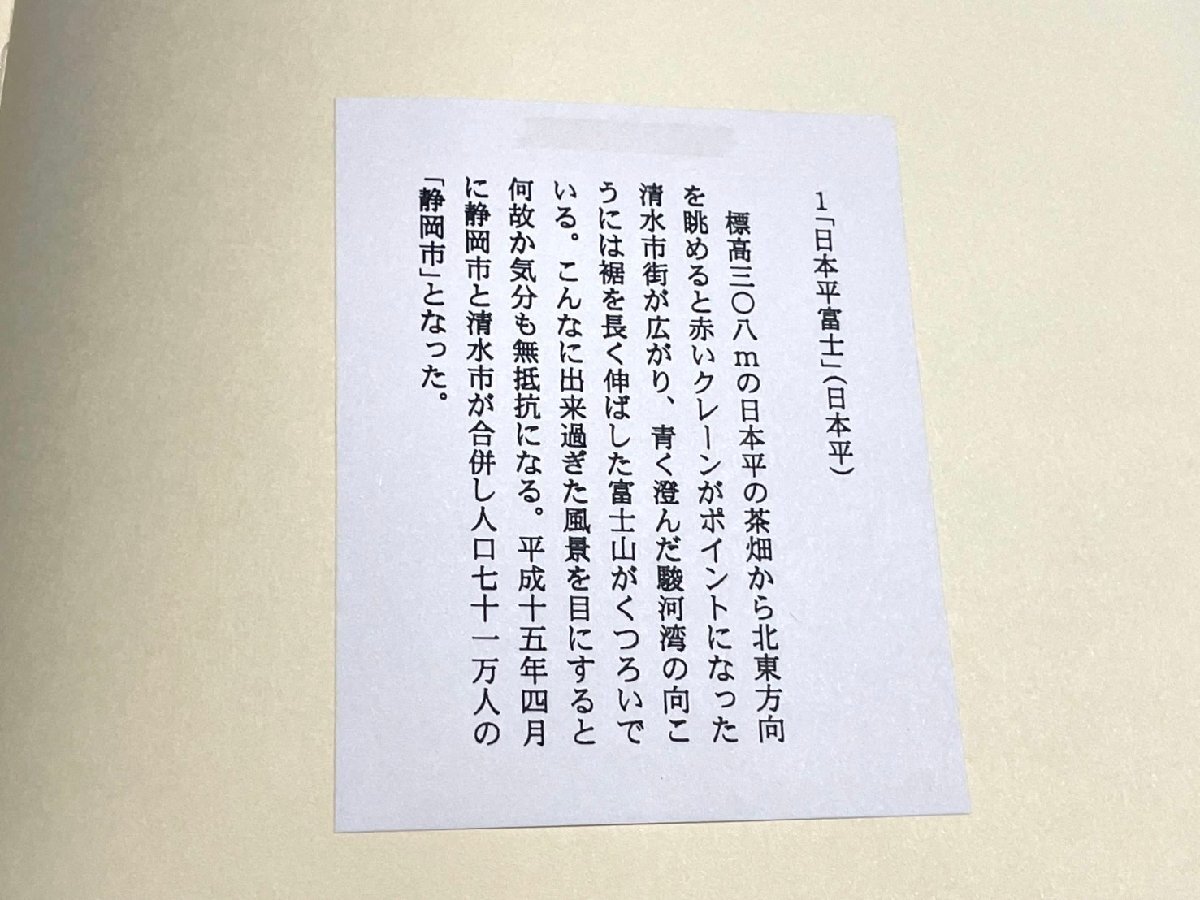 1「日本平富士」（日本平）
標高三〇八ｍの日本平の茶畑から北東方向
を眺めると赤いクレーンがポイントになった
清水市街が広がり、青く澄んだ駿河湾の向こ
うには裾を長く伸ばした富士山がくつろいで
いる。こんなに出来過ぎた風景を目にすると
何故か気分も無抵抗になる。平成十五年四月
に静岡市と清水市が合併し人口七十一万人の
「静岡市」となった。